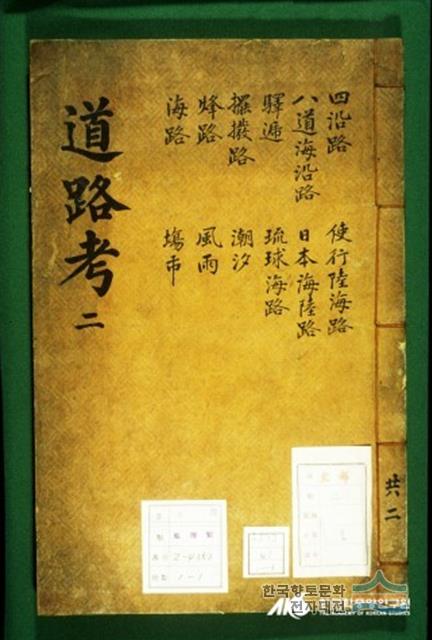 四沿路
八道海沿路
驛遞
擺撥路
烽路
海路
使行陸海路
日本海陸路
琉球海路
潮汐
風雨
塲市
道路考 二
共二
2-4353
1-1
한국향토문화
전자대전